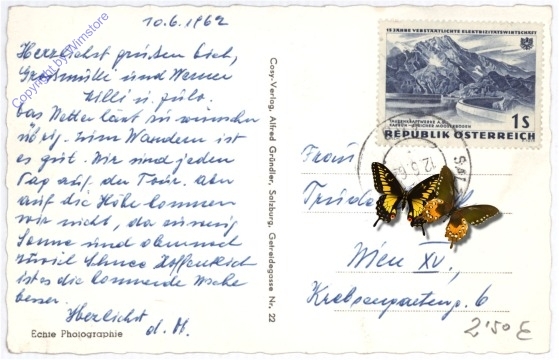 10.6.1962
Herrlichst grüßen Dich,
Großmutti und Werner
Willi u. Jula.
Das Wetter lässt zu wünschen
übrig. Zum Wandern ist
es gut. Wir sind jeden
Tag auf der Tour. Aber
auf die Höhe kommen
wir nicht, da zu wenig
Sonne und oben noch
zuviel Schnee. Hoffentlich
ist es die kommende Woche
besser.
Herzlichst
d. H.
Echte Photographie
Copyright by Wimstore
Cosy-Verlag, Alfred Gründler, Salzburg, Getreidegasse Nr. 22
15 JAHRE VERSTAATLICHTE ELEKTRIZITÄTSWIRTSCHAFT
1 S
REPUBLIK ÖSTERREICH
12.6.62
Frau
Trude
Wien XV,
6
2'50 €